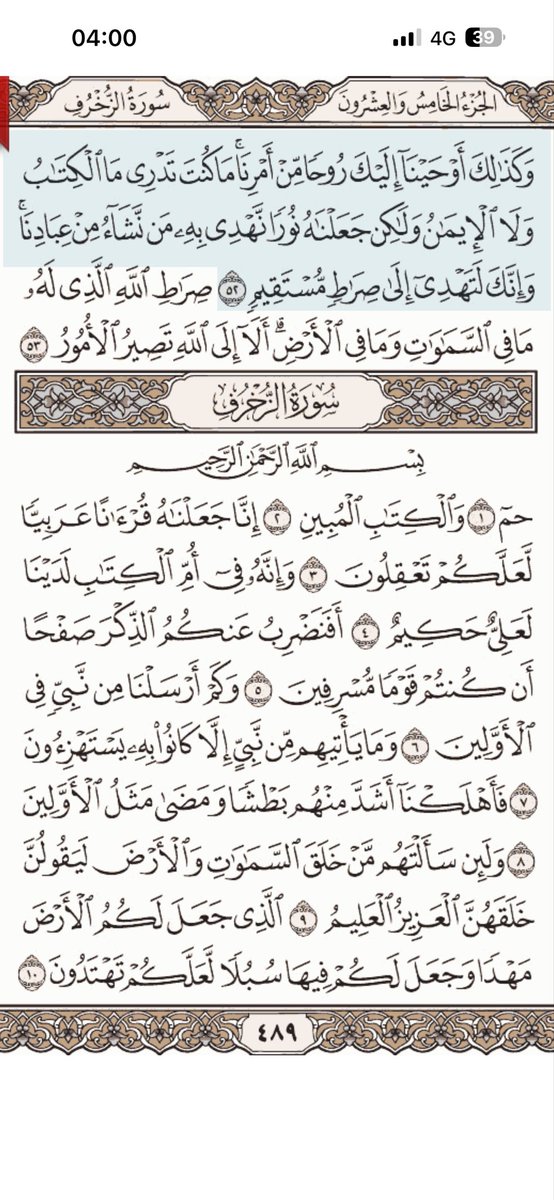 04:00 4G 39
سُورَةُ الزُّخْرُفِ الجُزْءُ الخَامِسُ وَالعِشْرُونَ
وَكَذَٰلِكَ أَوْحَيْنَآ إِلَيْكَ رُوحًا مِّنْ أَمْرِنَاۚ مَا كُنتَ تَدْرِى مَا ٱلْكِتَٰبُ
وَلَا ٱلْإِيمَٰنُ وَلَٰكِن جَعَلْنَٰهُ نُورًا نَّهْدِى بِهِۦ مَن نَّشَآءُ مِنْ عِبَادِنَاۚ
وَإِنَّكَ لَتَهْدِىٓ إِلَىٰ صِرَٰطٍ مُّسْتَقِيمٍ ٥٢ صِرَٰطِ ٱللَّهِ ٱلَّذِى لَهُۥ
مَا فِى ٱلسَّمَٰوَٰتِ وَمَا فِى ٱلْأَرْضِۗ أَلَآ إِلَى ٱللَّهِ تَصِيرُ ٱلْأُمُورُ ٥٣
سُورَةُ الزُّخْرُفِ
بِسْمِ ٱللَّهِ ٱلرَّحْمَٰنِ ٱلرَّحِيمِ
حمٓ ١ وَٱلْكِتَٰبِ ٱلْمُبِينِ ٢ إِنَّا جَعَلْنَٰهُ قُرْءَٰنًا عَرَبِيًّا
لَّعَلَّكُمْ تَعْقِلُونَ ٣ وَإِنَّهُۥ فِىٓ أُمِّ ٱلْكِتَٰبِ لَدَيْنَا
لَعَلِىٌّ حَكِيمٌ ٤ أَفَنَضْرِبُ عَنكُمُ ٱلذِّكْرَ صَفْحًا
أَن كُنتُمْ قَوْمًا مُّسْرِفِينَ ٥ وَكَمْ أَرْسَلْنَا مِن نَّبِىٍّ فِى
ٱلْأَوَّلِينَ ٦ وَمَا يَأْتِيهِم مِّن نَّبِىٍّ إِلَّا كَانُوا۟ بِهِۦ يَسْتَهْزِءُونَ
٧ فَأَهْلَكْنَآ أَشَدَّ مِنْهُم بَطْشًا وَمَضَىٰ مَثَلُ ٱلْأَوَّلِينَ
٨ وَلَئِن سَأَلْتَهُم مَّنْ خَلَقَ ٱلسَّمَٰوَٰتِ وَٱلْأَرْضَ لَيَقُولُنَّ
خَلَقَهُنَّ ٱلْعَزِيزُ ٱلْعَلِيمُ ٩ ٱلَّذِى جَعَلَ لَكُمُ ٱلْأَرْضَ
مَهْدًا وَجَعَلَ لَكُمْ فِيهَا سُبُلًا لَّعَلَّكُمْ تَهْتَدُونَ ١٠
٤٨٩